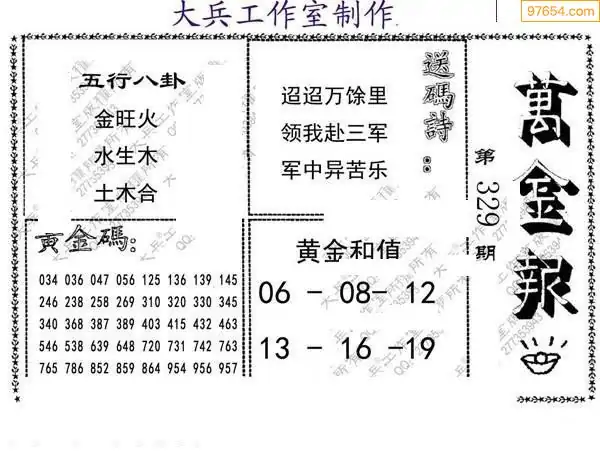 大兵工作室制作
97654.com
萬金報
第329期
送碼詩：
迢迢万馀里
领我赴三军
军中异苦乐
五行八卦
金旺火
水生木
土木合
黄金碼：
034 036 047 056 125 136 139 145
246 238 258 269 310 320 330 345
340 368 387 389 403 415 432 463
546 538 639 648 720 731 742 763
765 786 852 859 864 954 956 957
黄金和值
06 - 08- 12
13 - 16 -19